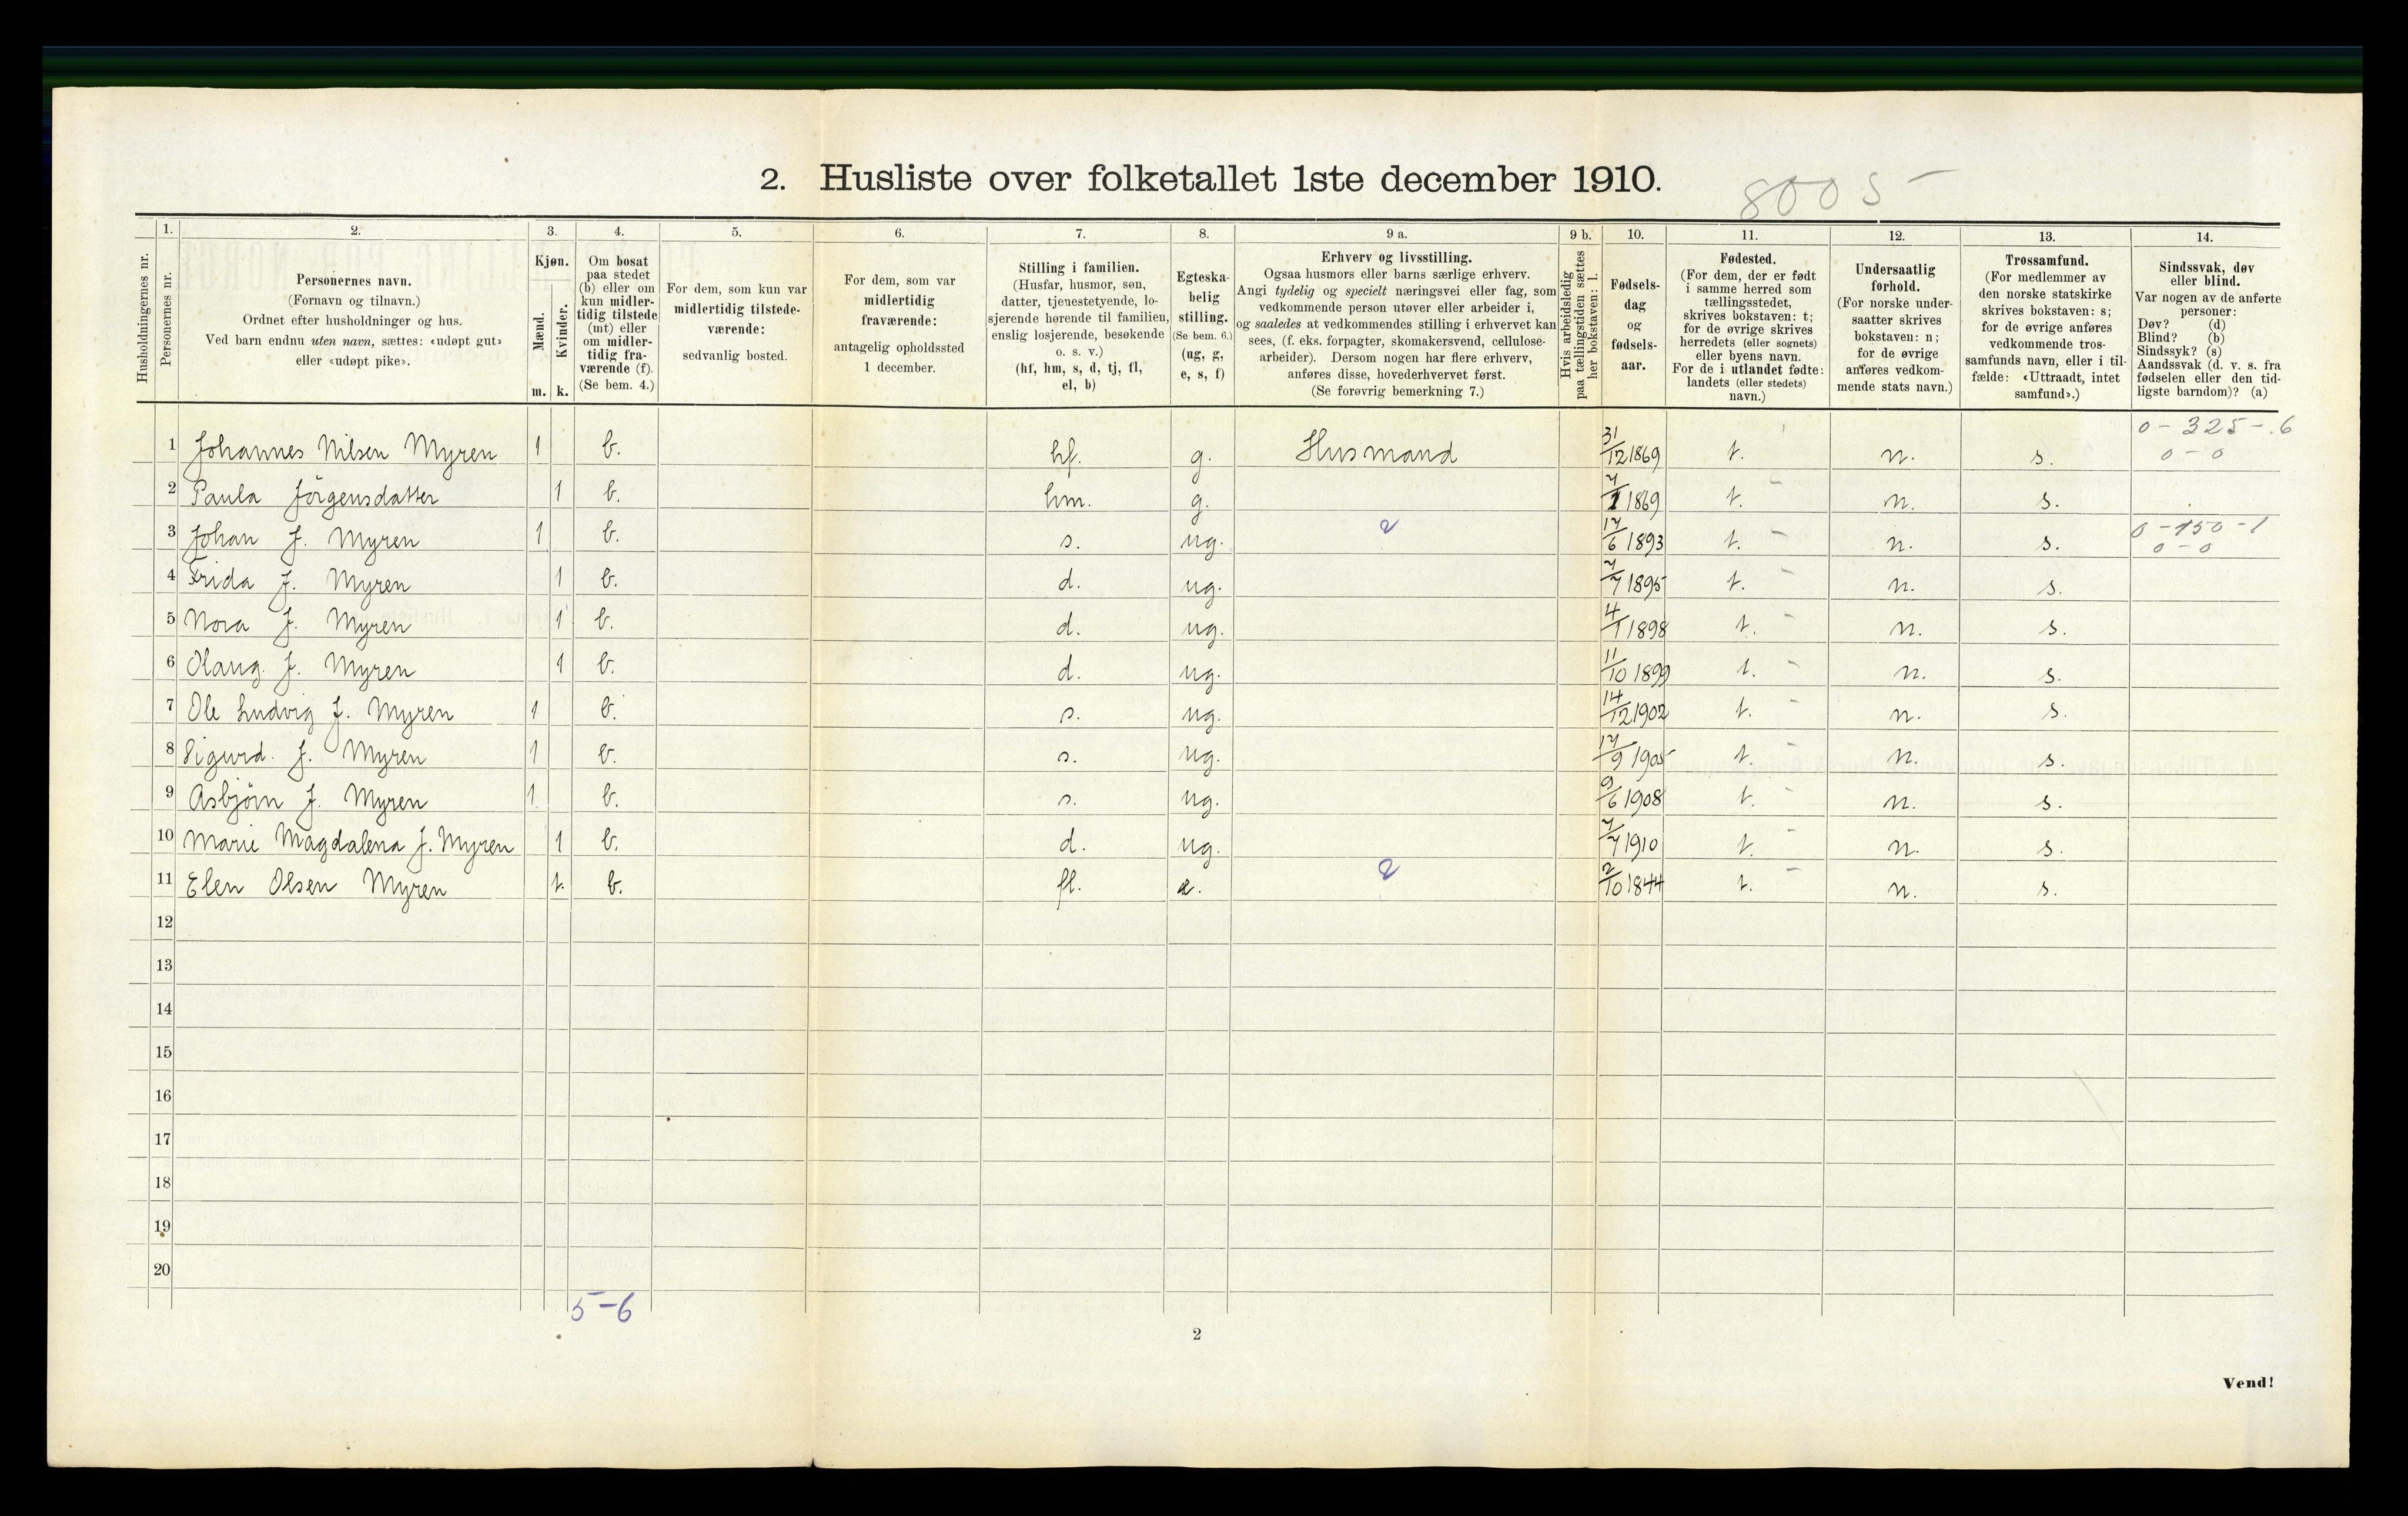 2. Husliste over folketallet 1ste december 1910.
8005 –
Husholdningernes nr.
1. Personernes nr.
2. Personernes navn.
(Fornavn og tilnavn.)
Ordnet efter husholdninger og hus.
Ved barn endnu uten navn, sættes: «udøpt gut»
eller «udøpt pike».
3. Kjøn.
Mænd. m.
Kvinder. k.
4. Om bosat
paa stedet
(b) eller om
kun midler-
tidig tilstede
(mt) eller
om midler-
tidig fra-
værende (f).
(Se bem. 4.)
5. For dem, som kun var
midlertidig tilstede-
værende:
sedvanlig bosted.
6. For dem, som var
midlertidig
fraværende:
antagelig opholdssted
1 december.
7. Stilling i familien.
(Husfar, husmor, søn,
datter, tjenestetyende, lo-
sjerende hørende til familien,
enslig losjerende, besøkende
o. s. v.)
(hf, hm, s, d, tj, fl,
el, b)
8. Egteska-
belig
stilling.
(Se bem. 6.)
(ug, g,
e, s, f)
9 a. Erhverv og livsstilling.
Ogsaa husmors eller barns særlige erhverv.
Angi tydelig og specielt næringsvei eller fag, som
vedkommende person utøver eller arbeider i,
og saaledes at vedkommendes stilling i erhvervet kan
sees, (f. eks. forpagter, skomakersvend, cellulose-
arbeider). Dersom nogen har flere erhverv,
anføres disse, hovederhvervet først.
(Se forøvrig bemerkning 7.)
9 b. Hvis arbeidsledig
paa tællingstiden sættes
her bokstaven: l.
10. Fødsels-
dag
og
fødsels-
aar.
11. Fødested.
(For dem, der er født
i samme herred som
tællingsstedet,
skrives bokstaven: t;
for de øvrige skrives
herredets (eller sognets)
eller byens navn.
For de i utlandet fødte:
landets (eller stedets)
navn.)
12. Undersaatlig
forhold.
(For norske under-
saatter skrives
bokstaven: n;
for de øvrige
anføres vedkom-
mende stats navn.)
13. Trossamfund.
(For medlemmer av
den norske statskirke
skrives bokstaven: s;
for de øvrige anføres
vedkommende tros-
samfunds navn, eller i til-
fælde: «Uttraadt, intet
samfund».)
14. Sindssvak, døv
eller blind.
Var nogen av de anførte
personer:
Døv? (d)
Blind? (b)
Sindssyk? (s)
Aandssvak (d. v. s. fra
fødselen eller den tid-
ligste barndom)? (a)
0 – 325 – 6
1 Johannes Nilsen Myren 1 b. hf. g. Husmand 31/12 1869 t. n. s. 0 – 0
2 Paula Jörgensdatter 1 b. hm. g. 7/1 1869 t. – n. s.
3 Johan J. Myren 1 b. s. ug. 17/6 1893 t. – n. s. 0 – 150 – 1
0 – 0
4 Frida J. Myren 1 b. d. ug. 7/7 1895 t. – n. s.
5 Nora J. Myren 1 b. d. ug. 4/1 1898 t. – n. s.
6 Olaug. J. Myren 1 b. d. ug. 11/10 1899 t. – n. s.
7 Ole Ludvig J. Myren 1 b. s. ug. 14/12 1902 t. – n. s.
8 Sigurd. J. Myren 1 b. s. ug. 17/9 1905 t. – n. s.
9 Asbjörn J. Myren 1 b. s. ug. 9/6 1908 t. – n. s.
10 Marie Magdalena J. Myren 1 b. d. ug. 7/7 1910 t. – n. s.
11 Elen Olsen Myren 1 b. fl. e. 2/10 1844 t. – n. s.
12
13
14
15
16
17
18
19
20
5 – 6
2
Vend!